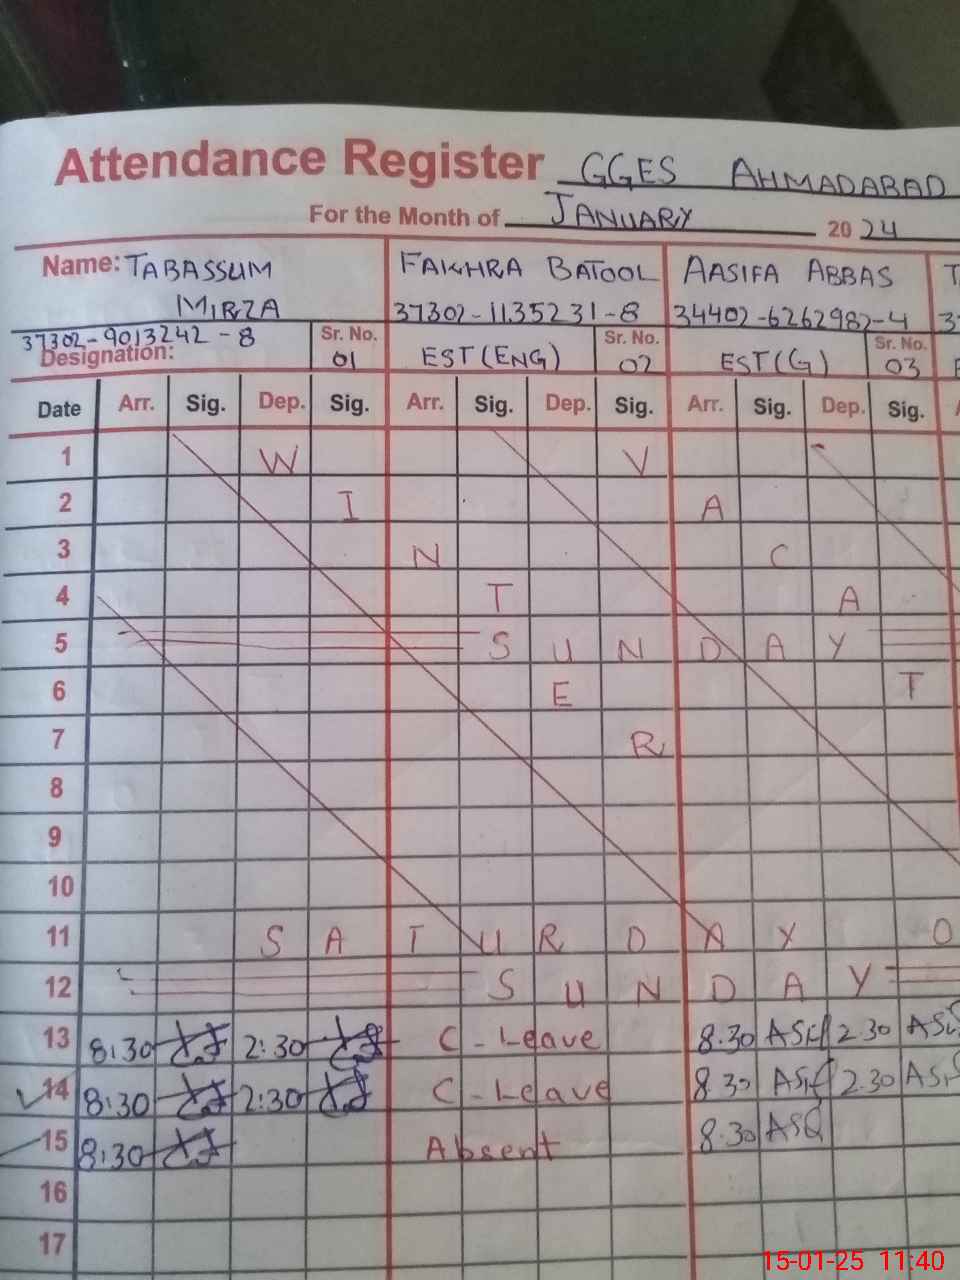 Attendance Register GGES AHMADABAD
For the Month of JANUARY 2024
Name: TABASSUM MIRZA FAKHRA BATOOL AASIFA ABBAS
37302-9013242-8 37302-1135231-8 34402-6262982-4
Designation: Sr. No. 01 EST(ENG) Sr. No. 02 EST(G) Sr. No. 03
Date Arr. Sig. Dep. Sig. Arr. Sig. Dep. Sig. Arr. Sig. Dep. Sig.
1 W V
2 I A
3 N C
4 T A
5 S U N D A Y
6 E T
7 R
8
9
10
11 S A T U R D A Y O
12 S U N D A Y
13 8:30 2:30 C-Leave 8.30 2.30
14 8:30 2:30 C-Leave 8.30 2.30
15 8:30 Absent 8.30
16
17
15-01-25 11:40